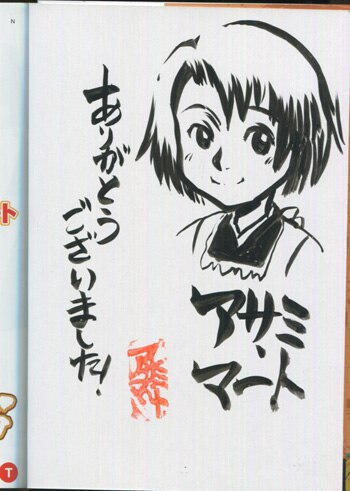 アサミ・
マート
ありがとう
ございました!
ト
N
T